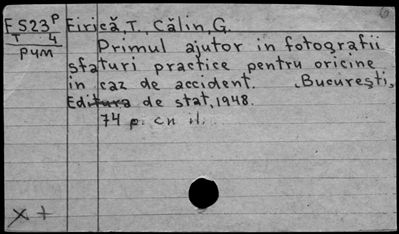 F 523p Firică, T., Călin, G.
T 4 Primul ajutor in fotografii
PUM sfaturi practice pentru oricine
in caz de accident. București,
Editura de stat, 1948.
74 p. cu il.
X +